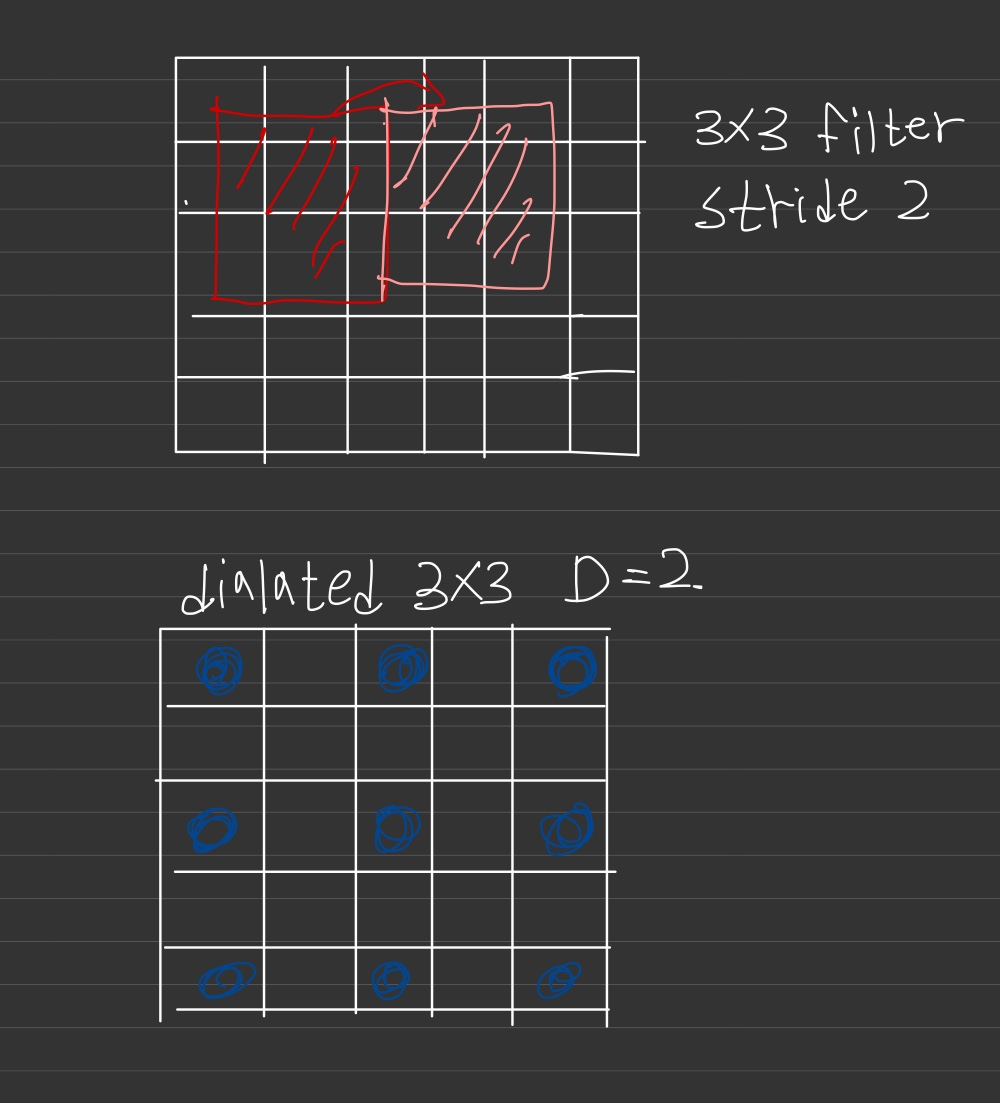 3×3 filter
stride 2
dialated 3×3 D=2.